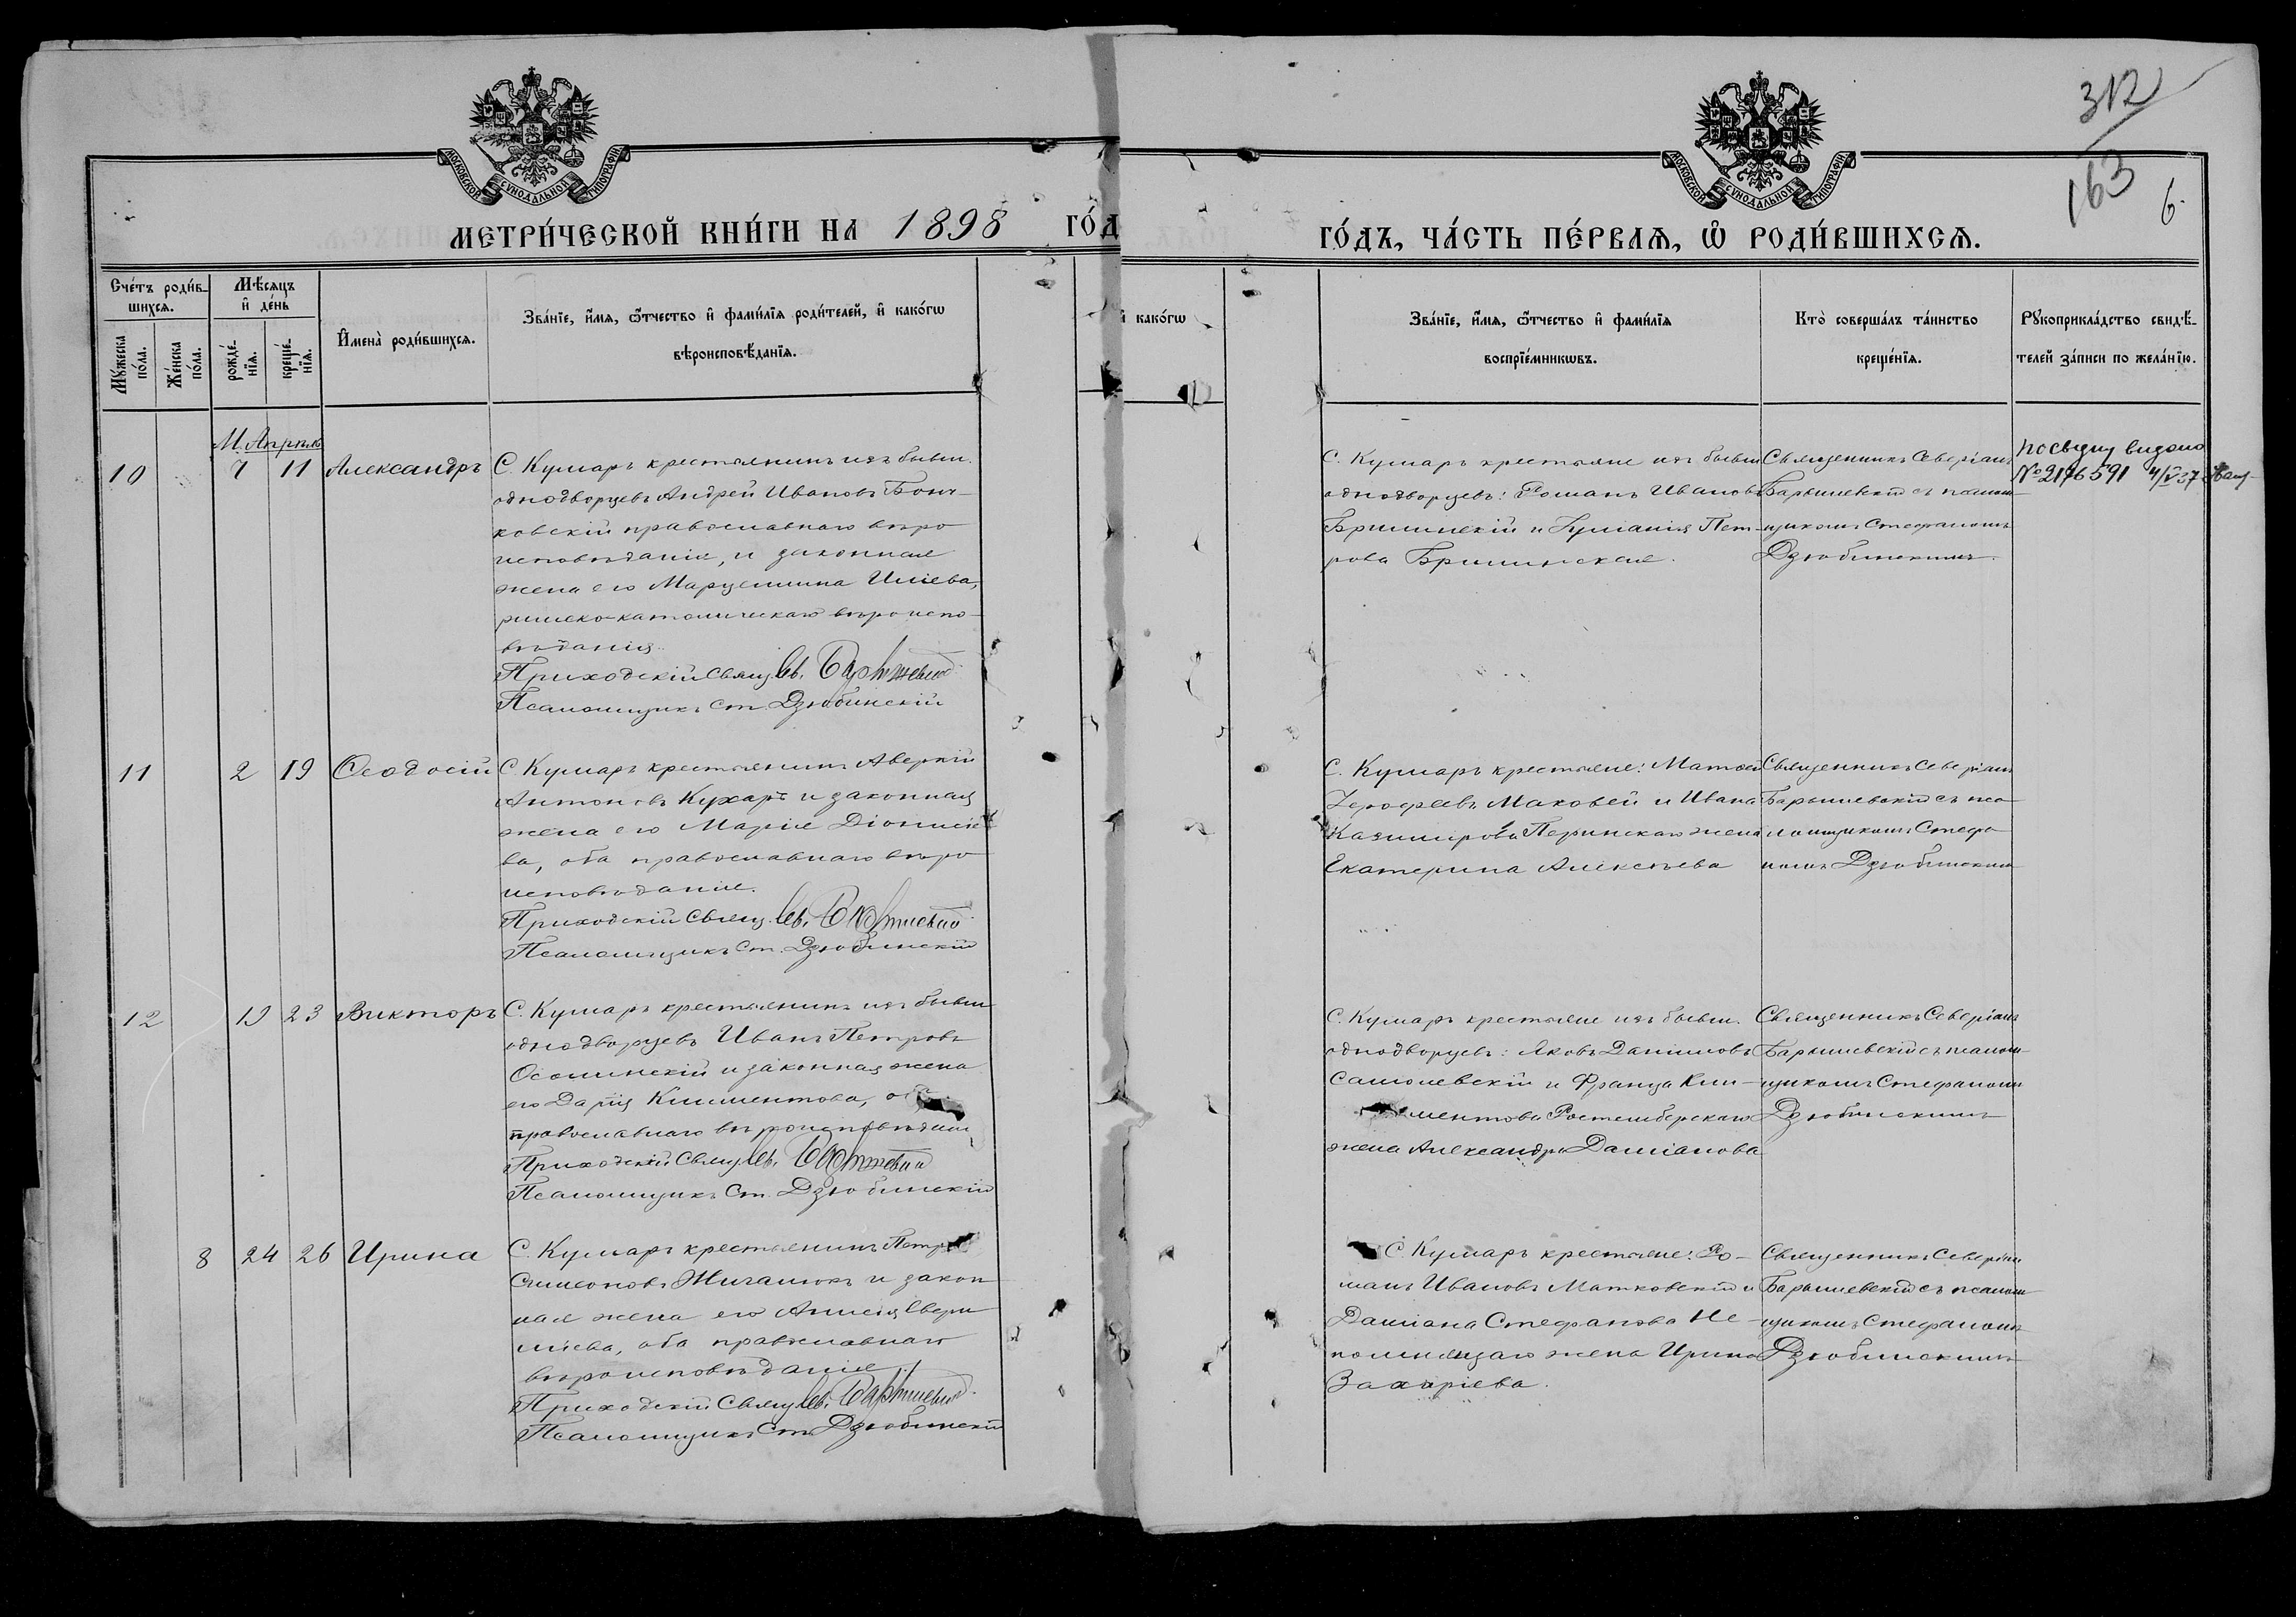 МОСКОВСКОЙ СѴНОДАЛЬНОЙ ТИПОГРАФІИ
МОСКОВСКОЙ СѴНОДАЛЬНОЙ ТИПОГРАФІИ
312
163
6.
МЕТРИ́ЧЕСКОЙ КНИ́ГИ НА 1898 ГО́Д
ГО́ДЪ, ЧА́СТЬ ПЕ́РВАѦ, Ѽ РОДИ́ВШИХСѦ.
Сче́тъ роди́в-
шихсѧ.
Мѣ́сѧцъ
и҆ де́нь
Мꙋ́жеска
по́ла.
Же́нска
по́ла.
рожде́-
нїѧ.
креще́-
нїѧ.
И҆мена̀ роди́вшихсѧ.
Зва́нїе, и҆́мѧ, ѻ҆́тчество и҆ фами́лїѧ роди́телей, и҆ како́гѡ
вѣроисповѣ́данїѧ.
и҆ како́гѡ
Зва́нїе, и҆́мѧ, ѻ҆́тчество и҆ фами́лїѧ
воспрїе́мникѡвъ.
Кто̀ соверша́лъ та́инство
креще́нїѧ.
Рꙋкоприкла́дство свидѣ́-
телей за́писи по жела́нїю.
М. Апрѣль
10
7
11
Александръ
С. Кумаръ крестьянинъ изъ бывш.
однодворцевъ Андрей Ивановъ Бонч-
ковскій православнаго вѣро
исповѣданія, и законная
жена его Марцеллина Иліева,
римско-католическаго вѣроиспо-
вѣданія.
Приходскій Свящ. Сев. Барышевскій
Псаломщикъ Ст. Дзюбинскій
С. Кумаръ крестьяне изъ бывш
однодворцевъ: Романъ Ивановъ
и Пет-
рова
Священникъ Северіанъ
Барышевскій съ псалом-
щикомъ Стефаномъ
Дзюбинскимъ.
видано
№ 2176591 4/V 37
11
2
19
Ѳеодосій
С. Кумаръ крестьянинъ Аверкій
Антоновъ Кухаръ и законная
жена его Марія Діонисіе
ва, оба православнаго вѣро
исповѣданія.
Приходскій Свящ. Сев. Барышевскій
Псаломщикъ Ст. Дзюбинскій
С. Кумаръ крестьяне: Матѳей
Іероѳеевъ Маковей и Ивана
Казимірова Перинскаго жена
Екатерина Алексѣева
Священникъ Северіанъ
Барышевскій съ пса-
ломщикомъ Стефа
номъ Дзюбинскимъ
12
19
23
Викторъ
С. Кумаръ крестьянинъ изъ бывш
однодворцевъ Иванъ Петровъ
Осолинскій и законная жена
его Дарія Климентова, оба
православнаго вѣроисповѣданія
Приходскій Свящ. Сев. Барышевскій
Псаломщикъ Ст. Дзюбинскій
С. Кумаръ крестьяне изъ бывш.
однодворцевъ: Яковъ Даниловъ
Самолевскій и Франца Кли-
ментова Ростембергскаго
жена Александра Даміанова
Священникъ Северіанъ
Барышевскій съ псалом-
щикомъ Стефаномъ
Дзюбинскимъ
8
24
26
Ирина
С. Кумаръ крестьянинъ Петръ
Симеоновъ Жигалюкъ и закон
ная жена его Анисія Евфи
міева, оба православнаго
вѣроисповѣданія.
Приходскій Свящ. Сев. Барышевскій
Псаломщикъ Ст. Дзюбинскій
С. Кумаръ крестьяне: Ро-
манъ Ивановъ Матковскій и
Даміана Стефанова Не-
помнящаго жена Ирина
Захаріева.
Священникъ Северіанъ
Барышевскій съ псалом
щикомъ Стефаномъ
Дзюбинскимъ